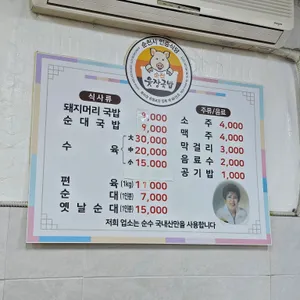 순천시 인증식당
순천
웃장국밥
식사류
돼지머리 국밥 9,000
순대국밥 9,000
수육 大 30,000
中 20,000
小 15,000
편육 (1kg)
순대 (1인분) 7,000
옛날순대 (1인분) 15,000
주류/음료
소주 4,000
맥주 4,000
막걸리 3,000
음료수 2,000
공기밥 1,000
저희 업소는 순수 국내산만을 사용합니다